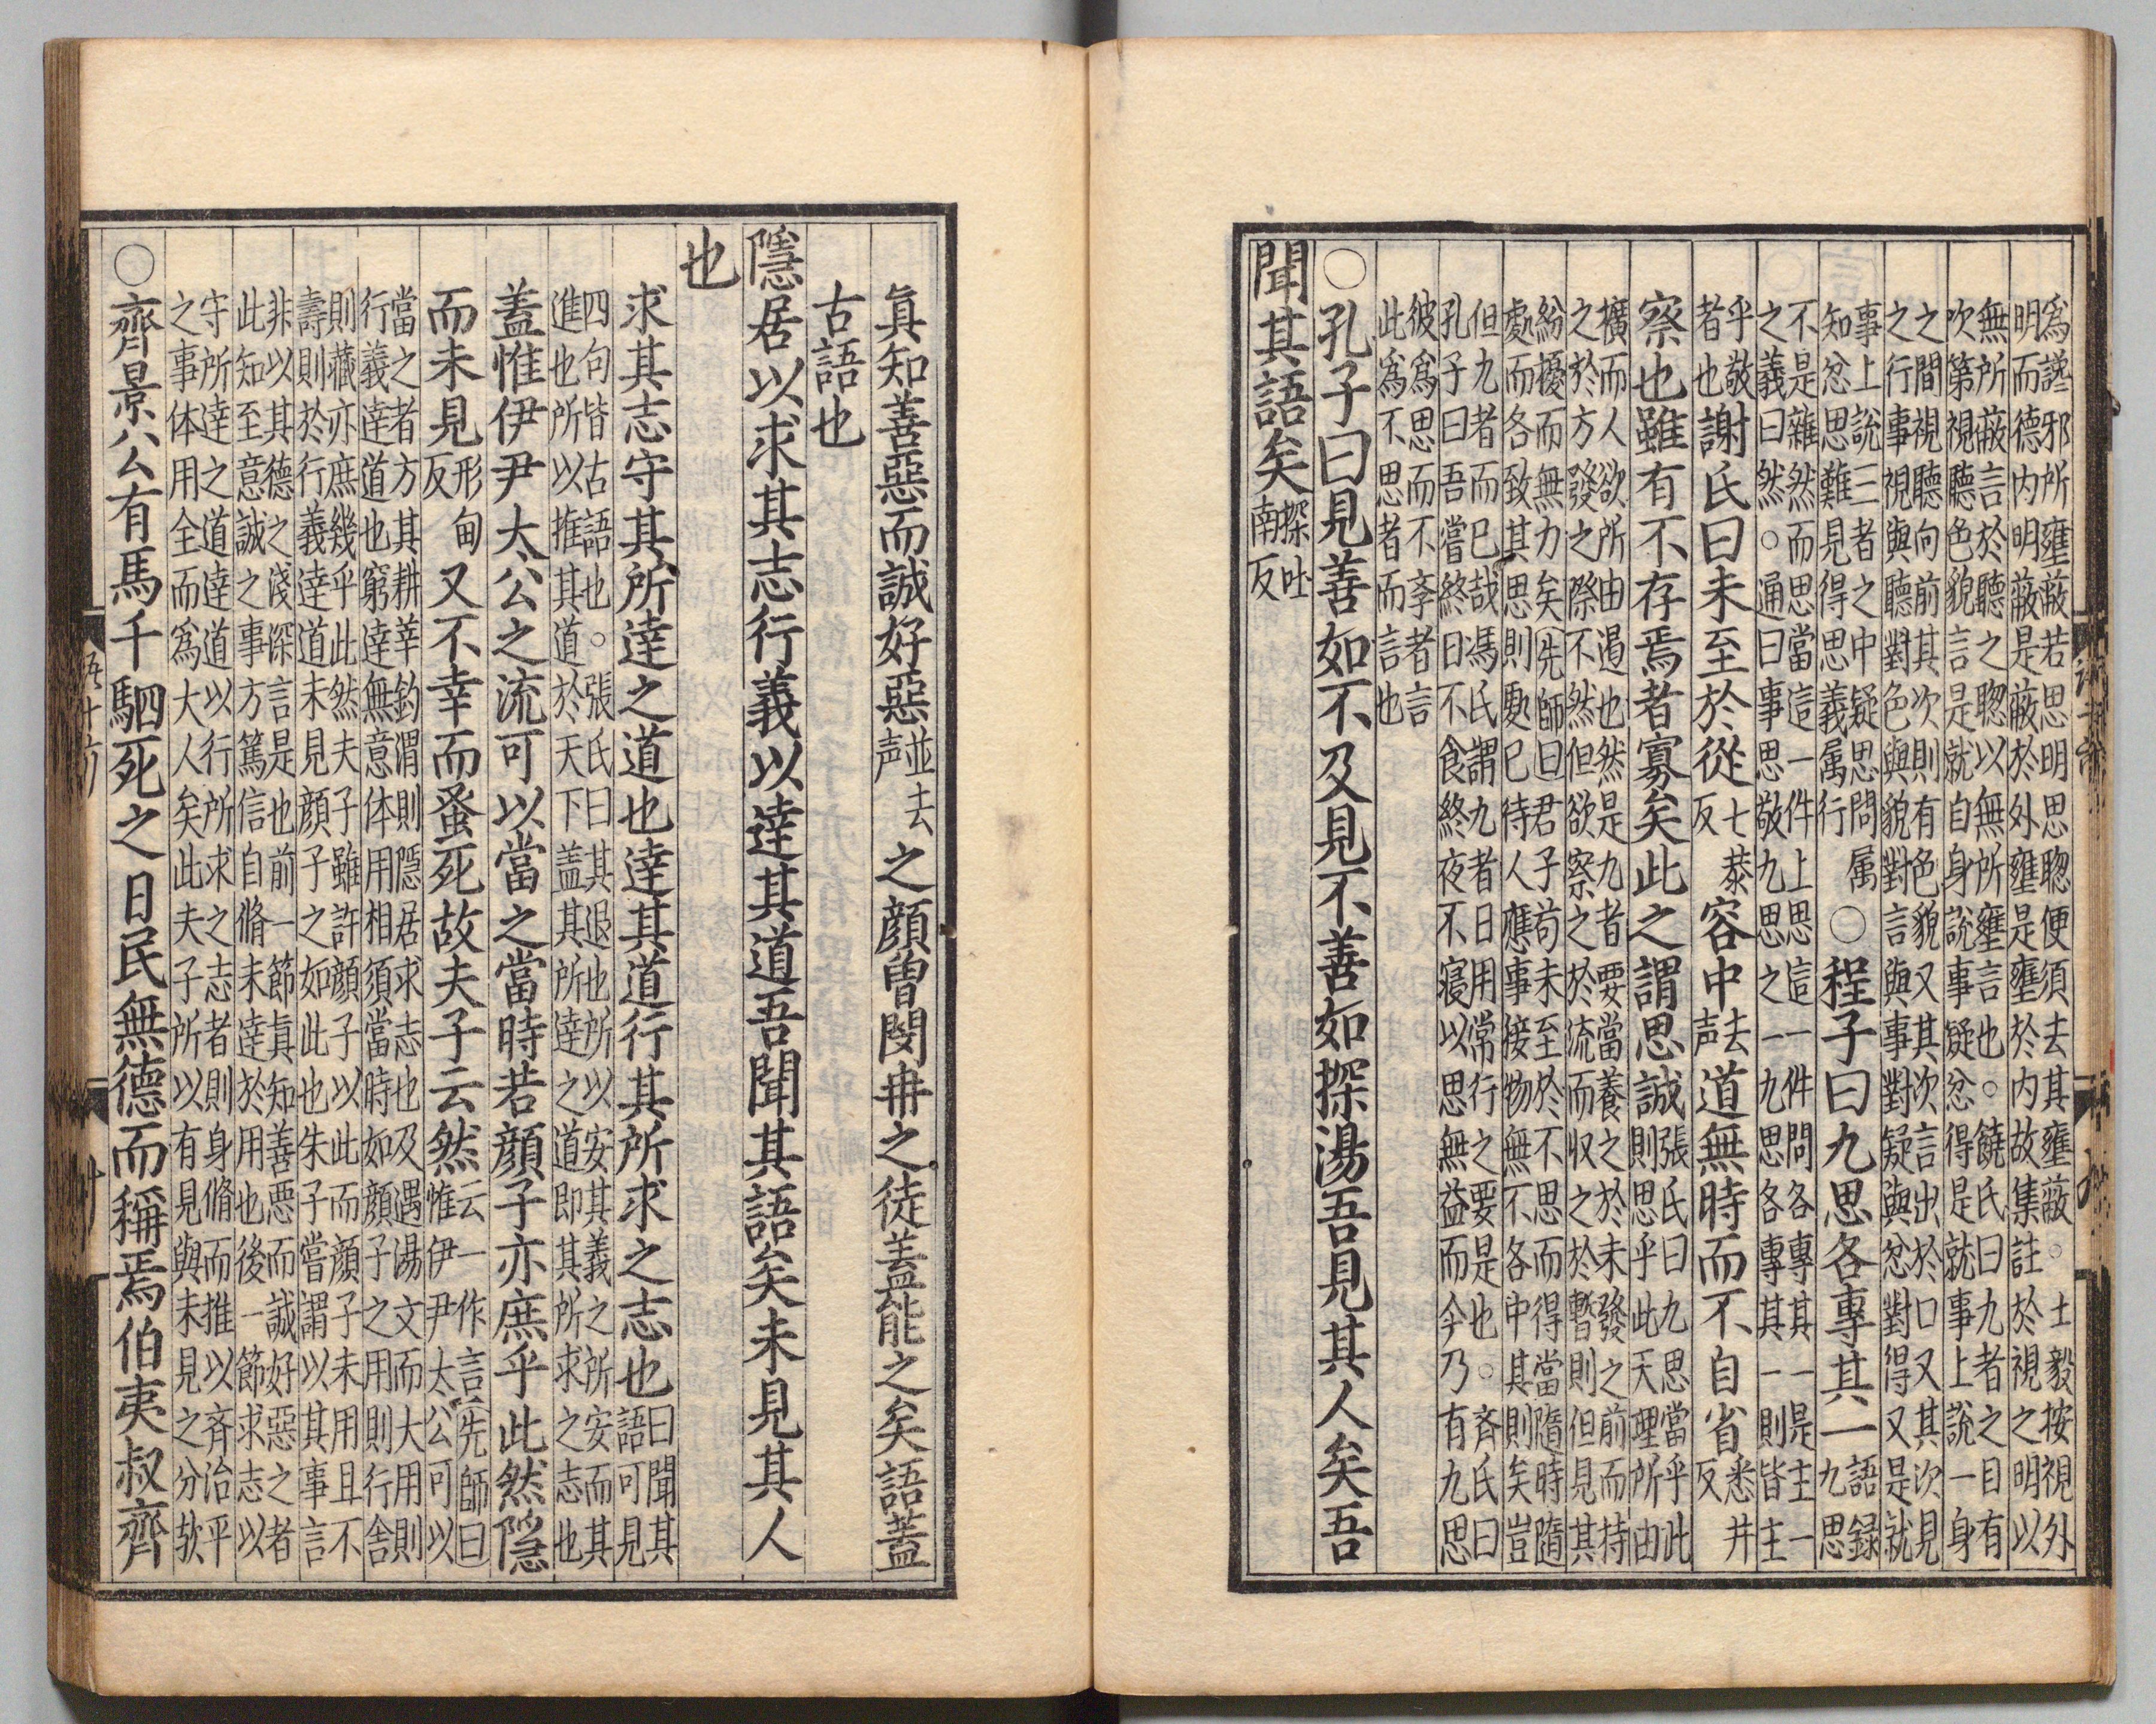 爲讒邪所壅蔽若思明思聰便須去其壅蔽○土毅按視外
明而德内明蔽是蔽於外壅是壅於内故集註於視之明以
無所蔽言於聽之聰以無所壅言也○饒氏曰九者之目有
次第視聽色貌言是就自身說事疑忿得是就事上說一身
之間視聽向前其次則有色貌又其次言出於口又其次見
之行事視與聽對色與貌對言與事對疑與忿對得又是就
事上說三者之中疑思問属
知忿思難見得思義属行
○程子曰九思各專其一
語録九思
不是雜然而思當這一件上思這一件問各專其一是主一
之義曰然○通曰事思敬九思之一九思各專其一則皆主
乎敬
者也
謝氏曰未至於從
七恭
反
容中
去
声
道無時而不自省
悉井
反
察也雖有不存焉者寡矣此之謂思誠
張氏曰九思當乎此
則思乎此天理所由
擴而人欲所由遏也然是九者要當養之於未發之前而持
之於方發之際不然但欲察之於流而収之於暫則但見其
紛擾而無力矣先師曰君子苟未至於不思而得當隨時隨
處而各致其思則更已待人應事接物無不各中其則矣豈
但九者而已哉馮氏謂九者日用常行之要是也○齐氏曰
孔子曰吾嘗終日不食終夜不寝以思無益而今乃有九思
彼爲思而不斈者言
此爲不思者而言也
○孔子曰見善如不及見不善如探湯吾見其人矣吾
聞其語矣
探吐
南反
眞知善惡而誠好惡
並去
声
之顔曽閔冉之徒盖能之矣語蓋
古語也
隱居以求其志行義以逹其道吾聞其語矣未見其人
也
求其志守其所逹之道也逹其道行其所求之志也
曰聞其
語可見
四句皆古語也○張氏曰其退也所以安其義之所安而其
進也所以推其道於天下盖其所逹之道即其所求之志也
盖惟伊尹太公之流可以當之當時若顔子亦庶乎此然隠
而未見
形甸
反
又不幸而蚤死故夫子云然
云一作言先師曰
惟伊尹太公可以
當之者方其耕莘釣渭則隠居求志也及遇湯文而大用則
行義逹道也窮逹無意体用相須當時如顔子之用則行舎
則藏亦庶幾乎此然夫子雖許顔子以此而顔子未用且不
壽則於行義逹道未見顔子之如此也朱子嘗謂以其事言
非以其德之淺深言是也前一節眞知善惡而誠好惡之者
此知至意誠之事方篤信自脩未逹於用也後一節求志以
守所逹之道逹道以行所求之志者則身脩而推以齐治平
之事体用全而爲大人矣此夫子所以有見與未見之分欤
○齊景公有馬千駟死之日民無德而稱焉伯夷叔齊